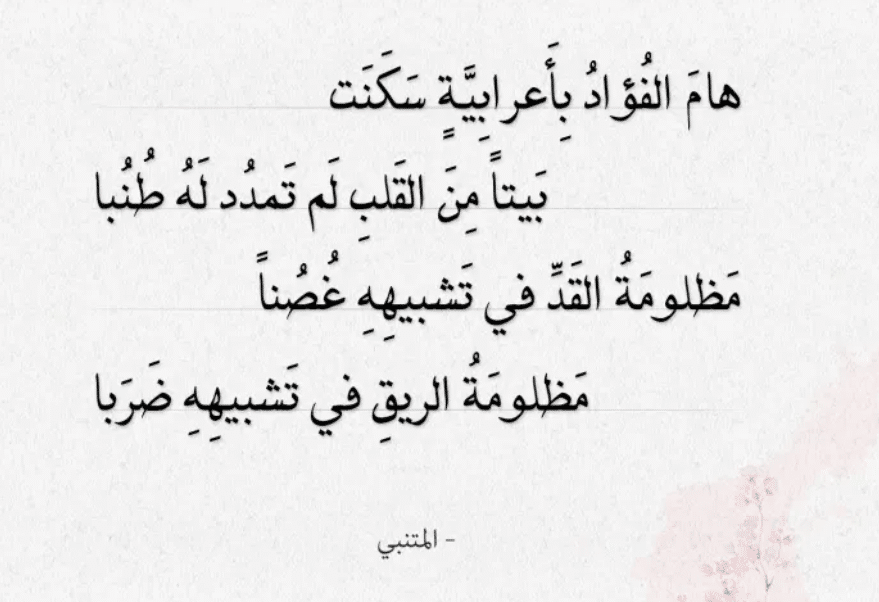 هامَ الفُؤادُ بِأَعرابِيَّةٍ سَكَنَت
بَيتاً مِنَ القَلبِ لَم تَمدُد لَهُ طُنُبا
مَظلومَةُ القَدِّ في تَشبيهِهِ غُصُناً
مَظلومَةُ الريقِ في تَشبيهِهِ ضَرَبا
- المتنبي